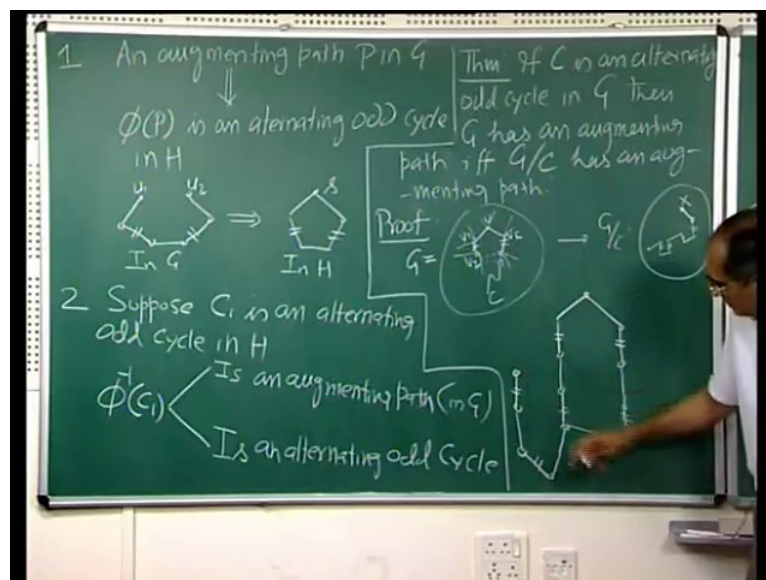 1 An augmenting path P in G
⇓
φ(P) is an aternating odd cycle
in H
u₁ u₂ ⇒ s
In G In H
2 Suppose C₁ is an alternating
odd cycle in H
φ⁻¹(C₁)
Is an augmenting path (in G)
Is an alternating odd cycle
Thm: If C is an alternatig
odd cycle in G then
G has an augmenting
path iff G/C has an aug-
-menting path.
Proof.
G = → G/C
C